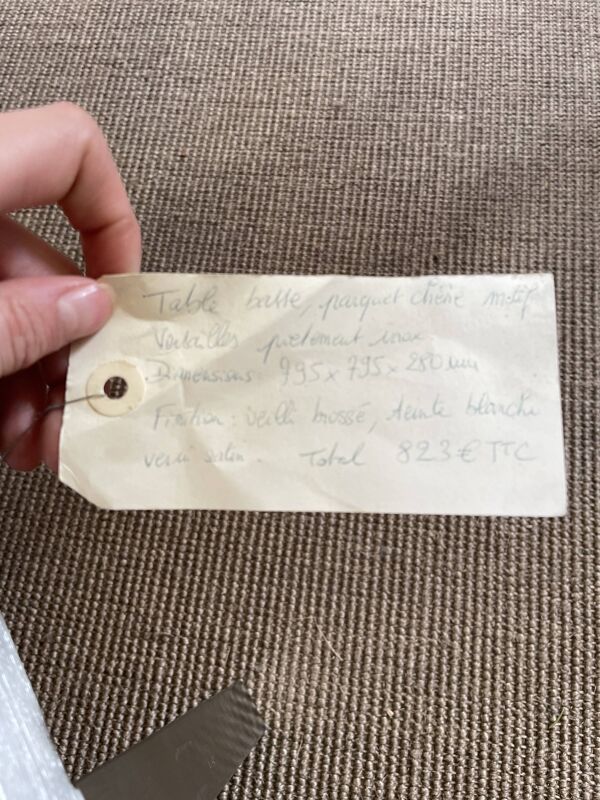 Table basse, parquet chêne motif
Versailles pietement inox
Dimensions: 995 x 795 x 280 mm
Finition: vieilli brossé, teinte blanche
verni satin. Total 823 € TTC